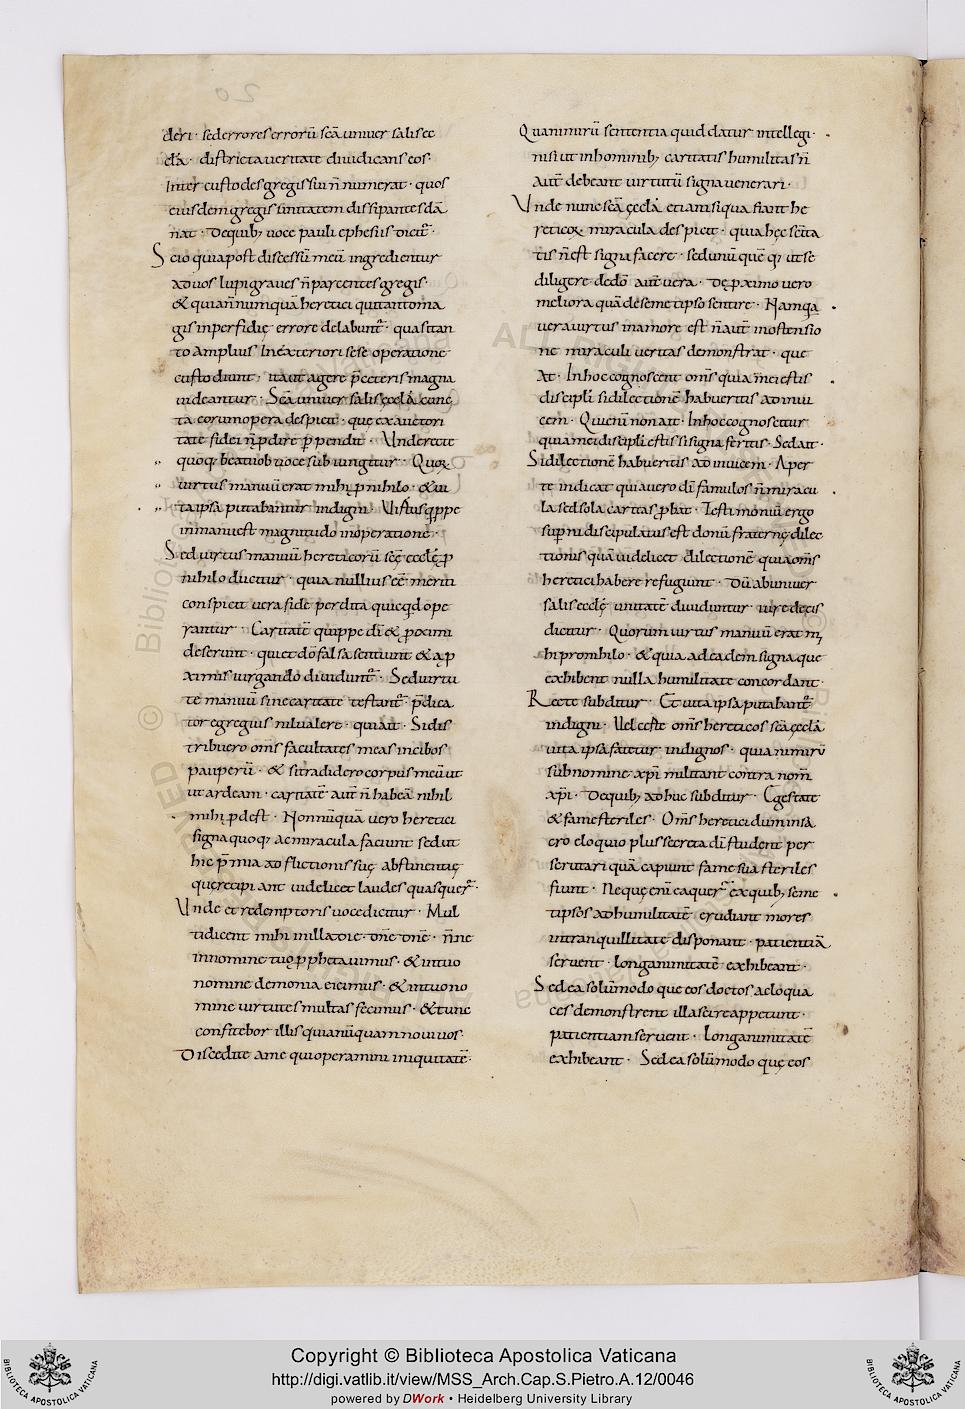 deri · sed errores errorū scā univer salis ec
clā · districta veritate diiudicans eos·
Inter custodes gregis sui n̄ numerat · quos
eiusdem gregis unitatem dissipantes dā
nat · De quib; voce pauli ephesiis dicit̄ ·
Scio quia post discessū meū ingredientur
ad vos lupi graves n̄ parcentes gregi·
& quia n̄numquā heretici qui tanto ma
gis in perfidię errore delabunt̄ · quasi tan
to amplius In exteriori sese operatione
custodiunt · ita ut agere p̄ ceteris magna
videantur · Scā univer salis ęcclā cunc
ta eorum opera despicit · que ex auctori
tate fidei n̄ ꝓdire ꝑpendit · Unde recte
quoq; beati iob voce subiungitur · Quoꝝ
virtus manuū erat mihi ꝓ nihilo · & vi
ta ipsa putabantur indigni · Virtus q̄ppe
in manu est magnitudo in operatione ·
Sed virtus manuū hereticorū scę ecclę ꝓ
nihilo ducitur · quia nullius eē meriti
conspicit vera fide perdita quicq̄d ope
rantur · Caritatē quippe dī & ꝓximi
deserunt · qui et dō falsa sentiunt & a ꝓ
ximis iurgando dividunt̄ · Sed virtu
tē manuū sine caritate testant̄ · p̄dica
tor egregius nil valere · qui ait · Si dis
tribuero om̄s facultates meas in cibos
pauperū · & si tradidero corpus meū ut
ut ardeam · caritatē aut̄ n̄ habeā nihil
mihi ꝓdest · Nonnūquā vero heretici
signa quoq; ac miracula faciunt sed ut
hic p̄mia adflictionis suę abstinentię
quę recipiant videlicet laudes quas quer̄ ·
Unde et redemptoris voce dicitur · Mul
ti dicent mihi in illa die · dn̄e dn̄e · n̄ne
in nomine tuo ꝓphetavimus · & in tuo
nomine demonia eicimus · & in tuo no
mine virtutes multas fecimus · & tunc
confitebor illis quia nūquam novi vos·
Discedite a me qui operamini iniquitatē·
Qua nimirū sententia quid datur intellegi·
nisi ut in hominib; caritatis humilitas n̄
aut̄ debeant virtutū signa venerari·
Unde nunc scā ęcclā etiam si qua fiant he
reticoꝝ miracula despicit · quia hęc scīta
tis n̄ est signa facere · sed unū quēq; ut se
diligere de dō aut̄ vera · De ꝓximo vero
meliora quā de semetipso sentire · Namq̄a
vera virtus in amore est n̄ aut̄ in ostensio
ne miraculi veritas demonstrat · que
ait · In hoc cognoscent om̄s quia mei estis
discipli si dilectionē habueritis ad invi
cem · Qui enī non ait · In hoc cognoscitur
quia mei discipli estis si signa fertis · Sed ait ·
Si dilectionē habueritis ad invicem · Aper
te indicat quia vero dī famulos n̄ miracu
la sed sola caritas ꝓbat · Testimoniū ergo
supn̄i discipulatus est donū fraternę dilec
tionis quā videlicet dilectionē quia om̄s
heretici habere refugiunt · Dū ab univer
salis ecclę unitate dividuntur · iure de eis
dicitur · Quorum virtus manuū erat m
hi pro nihilo · & quia ad eadem signa que
exhibent nulla humilitate concordant·
Recte subditur · Et vita ipsa putabant̄
indigni · Vel certe om̄s hereticos scā ęcclā
vita ipsa fatetur indignos · quia nimirū
sub nomine xp̄i militant contra nom̄
xp̄i · De quib; adhuc subditur · Egestate
& fame steriles · Om̄s heretici dum in sa
cro eloquio plus secreta dī student per
scrutari quā capiunt fame sua steriles
fiunt · Neque enī ea quer̄ ex quib; seme
tipsos ad humilitatē erudiant mores
in tranquillitate disponant · patientiā
servent · longanimitatē exhibeant ·
Sed ea solūmodo que eos doctos ac loqua
ces demonstrent illa scire appetunt ·
patientiam servent · Longanimitatē
exhibeant · Sed ea solūmodo quę eos
Copyright © Biblioteca Apostolica Vaticana
http://digi.vatlib.it/view/MSS_Arch.Cap.S.Pietro.A.12/0046
powered by DWork • Heidelberg University Library